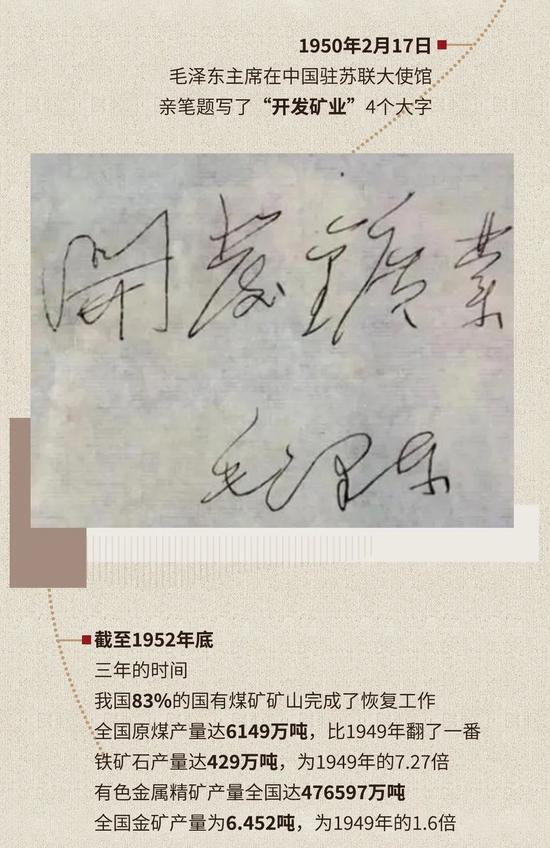 1950年2月17日
毛泽东主席在中国驻苏联大使馆
亲笔题写了“开发矿业”4个大字
開發鑛業
毛泽东
截至1952年底
三年的时间
我国83%的国有煤矿矿山完成了恢复工作
全国原煤产量达6149万吨，比1949年翻了一番
铁矿石产量达429万吨，为1949年的7.27倍
有色金属精矿产量全国达476597万吨
全国金矿产量为6.452吨，为1949年的1.6倍